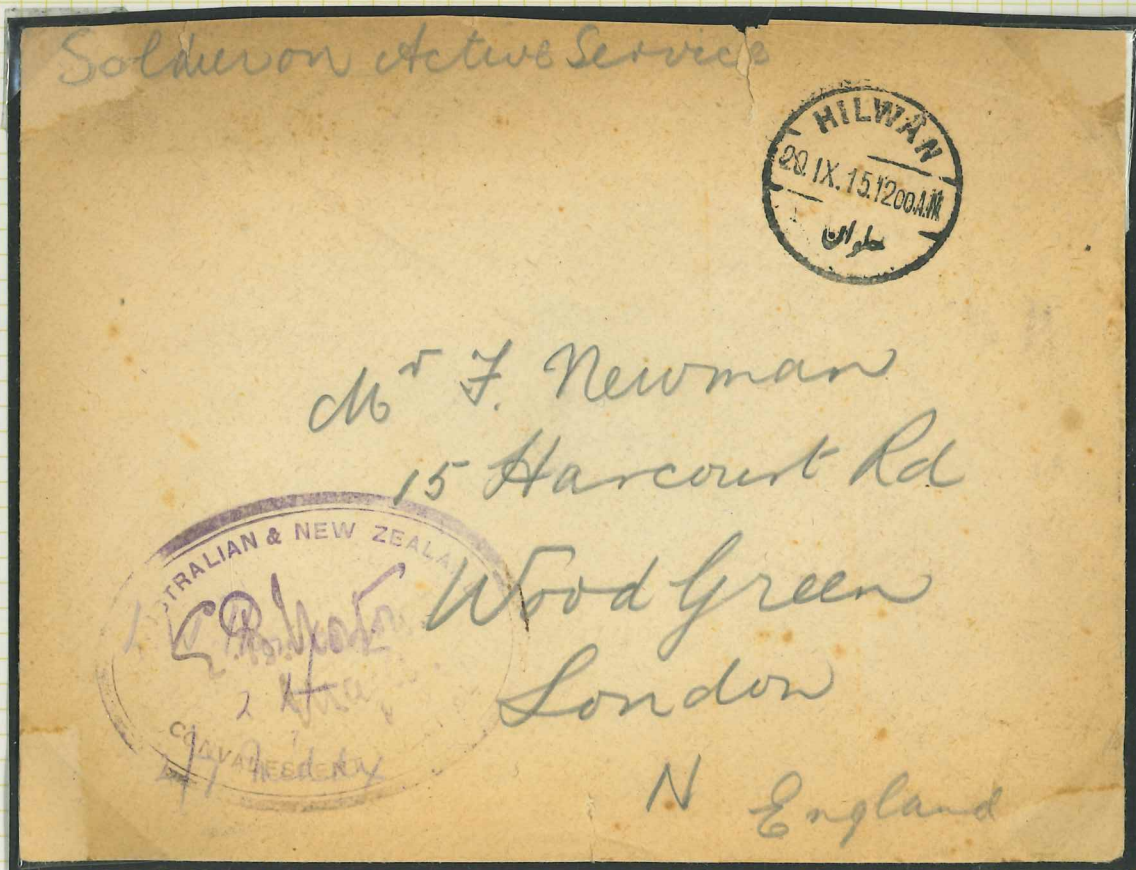 Soldier on Active Service
HILWÂN
29.IX.15.1200A.M
حلوان
Mr F. Newman
15 Harcourt Rd
Wood Green
London
N England
AUSTRALIAN & NEW ZEALAN
CONVALESCENT